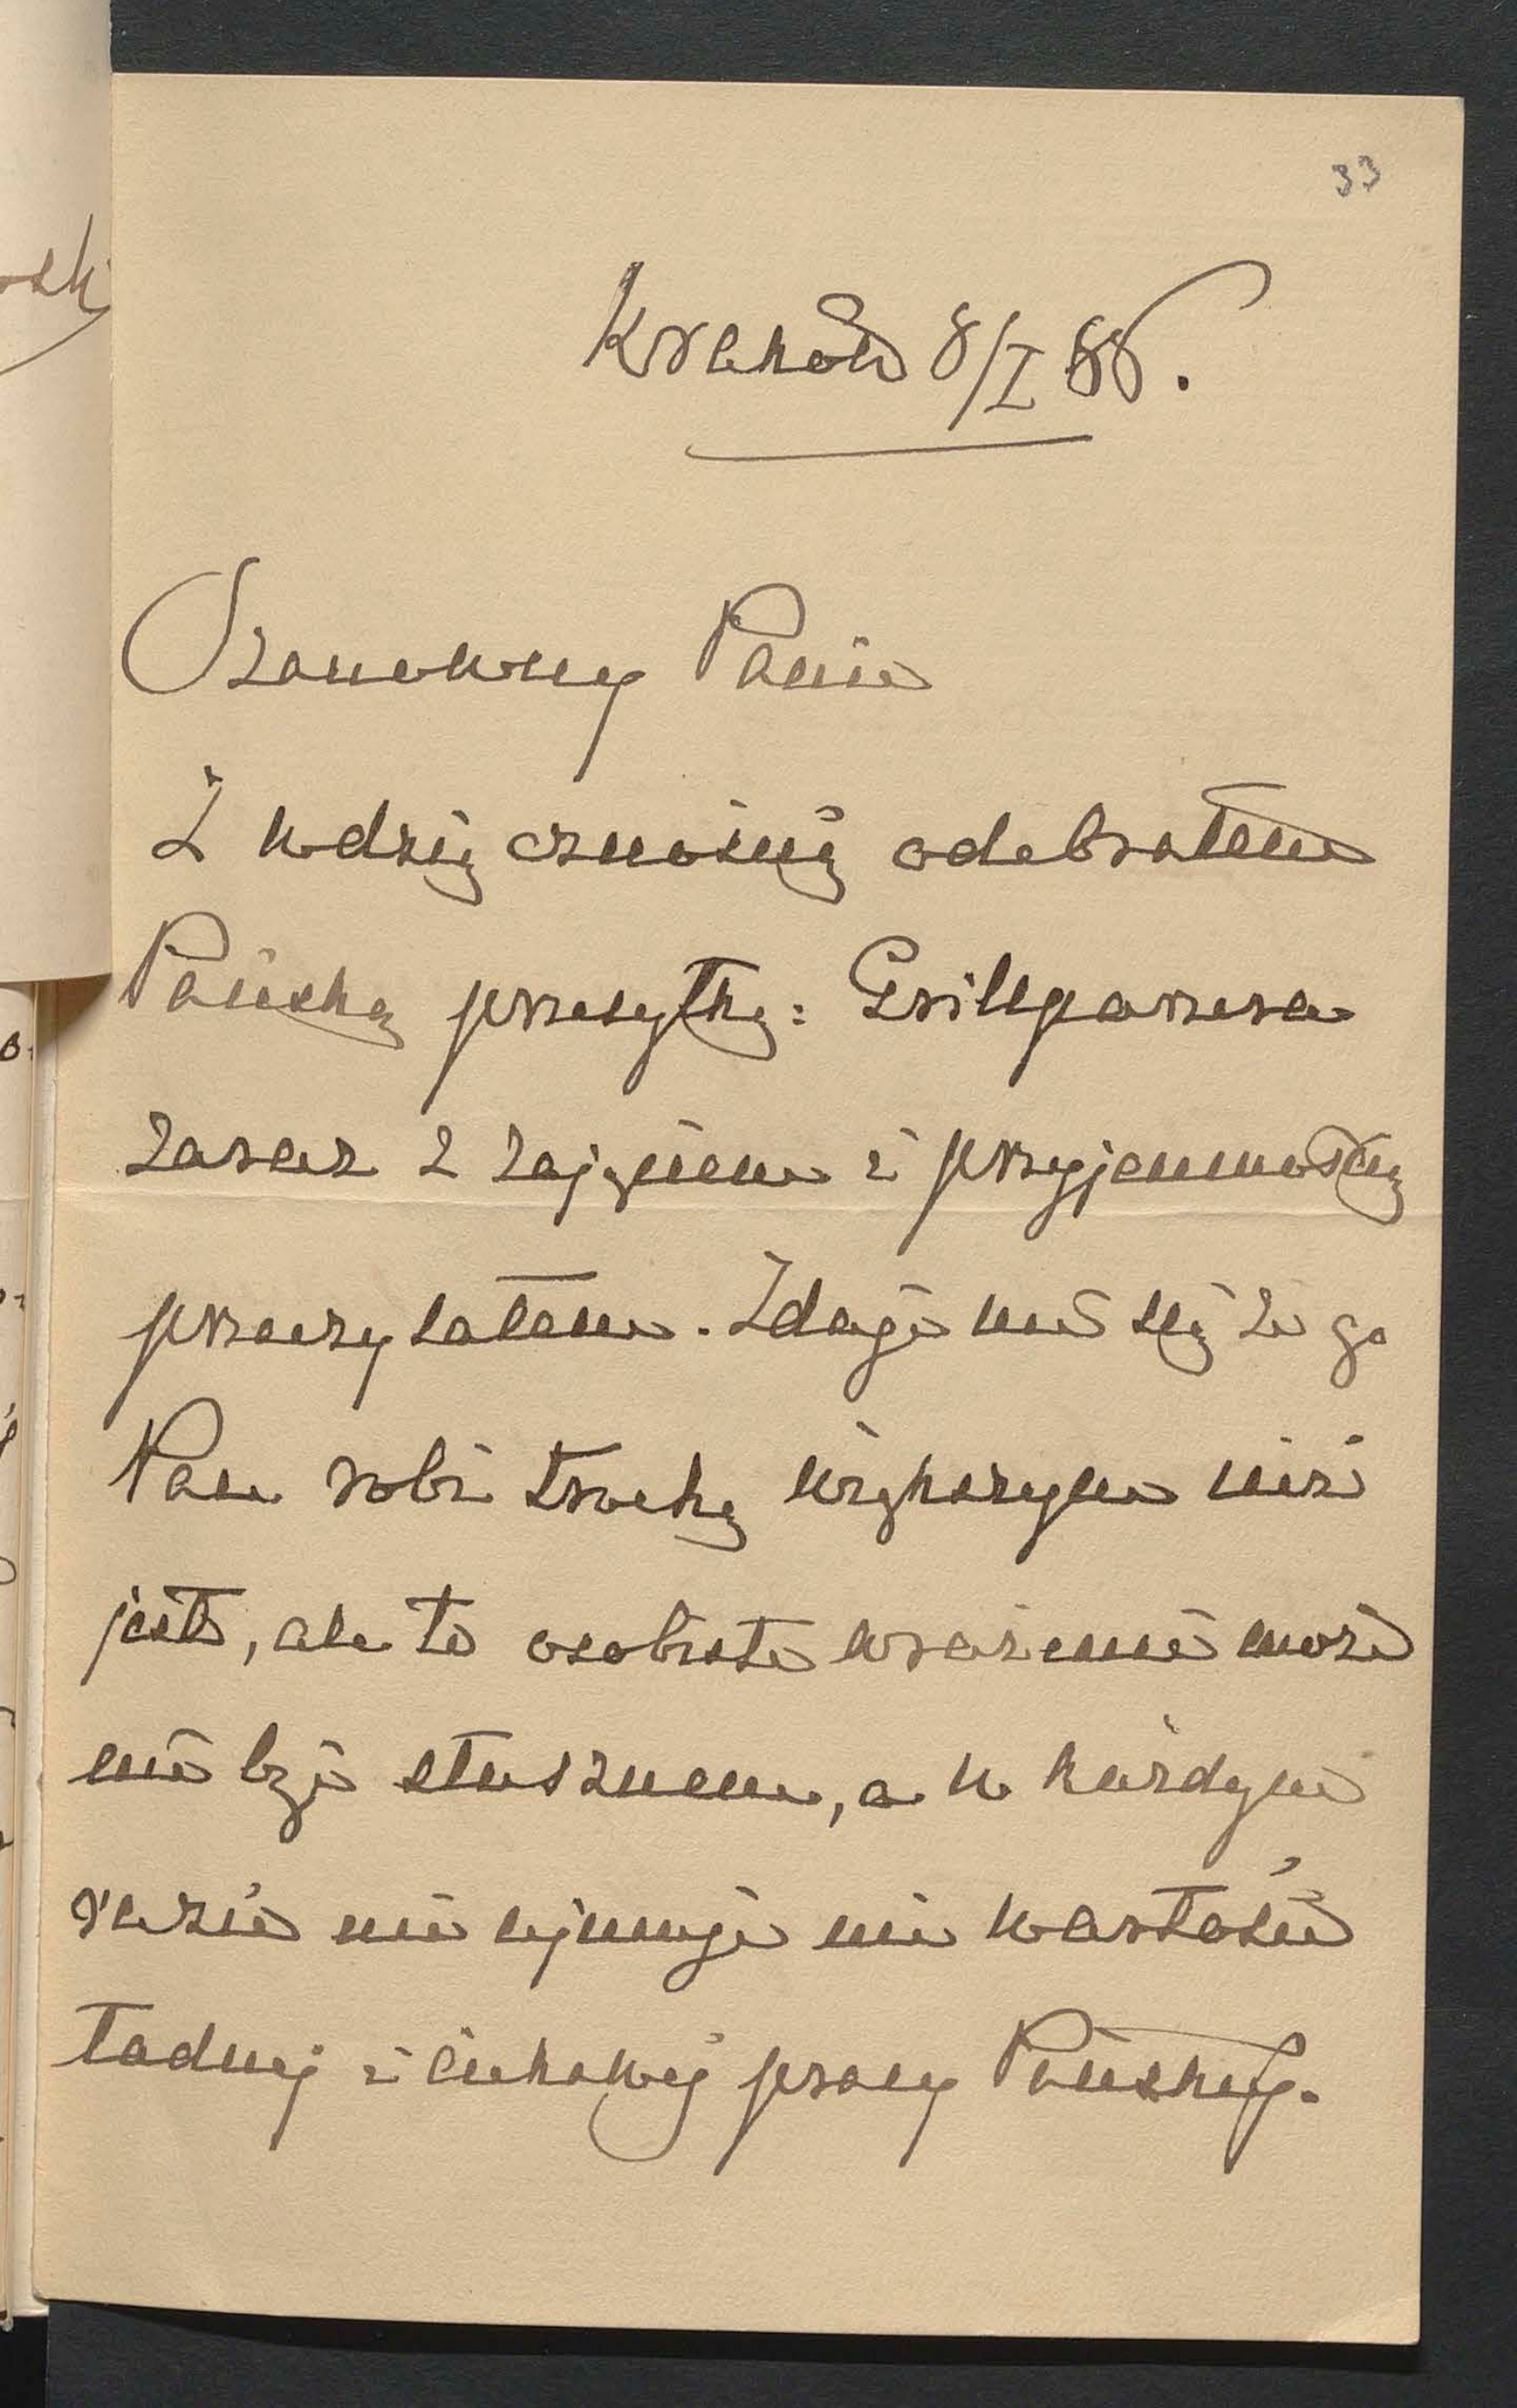 33
Kraków 8/I 88.
Szanowny Panie
Z wdzięcznością odebrałem
Pańską przesyłkę: Grillparzera
zaraz z zajęciem i przyjemnością
przeczytałem. Zdaje mi się że go
Pan robi trochę większym niż
jest, ale to osobiste wrażenie może
nie być słusznem, a w każdym
razie nie ujmuje nic wartości
ładnej i ciekawej pracy Pańskiej.